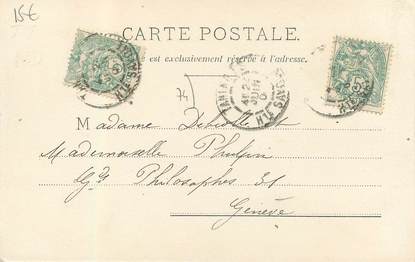 15€
CARTE POSTALE.
est exclusivement réservé à l'adresse.
74
HTE SAVOIE
Madame
Mademoiselle Philpin
Gds Philosophes 31
Genève